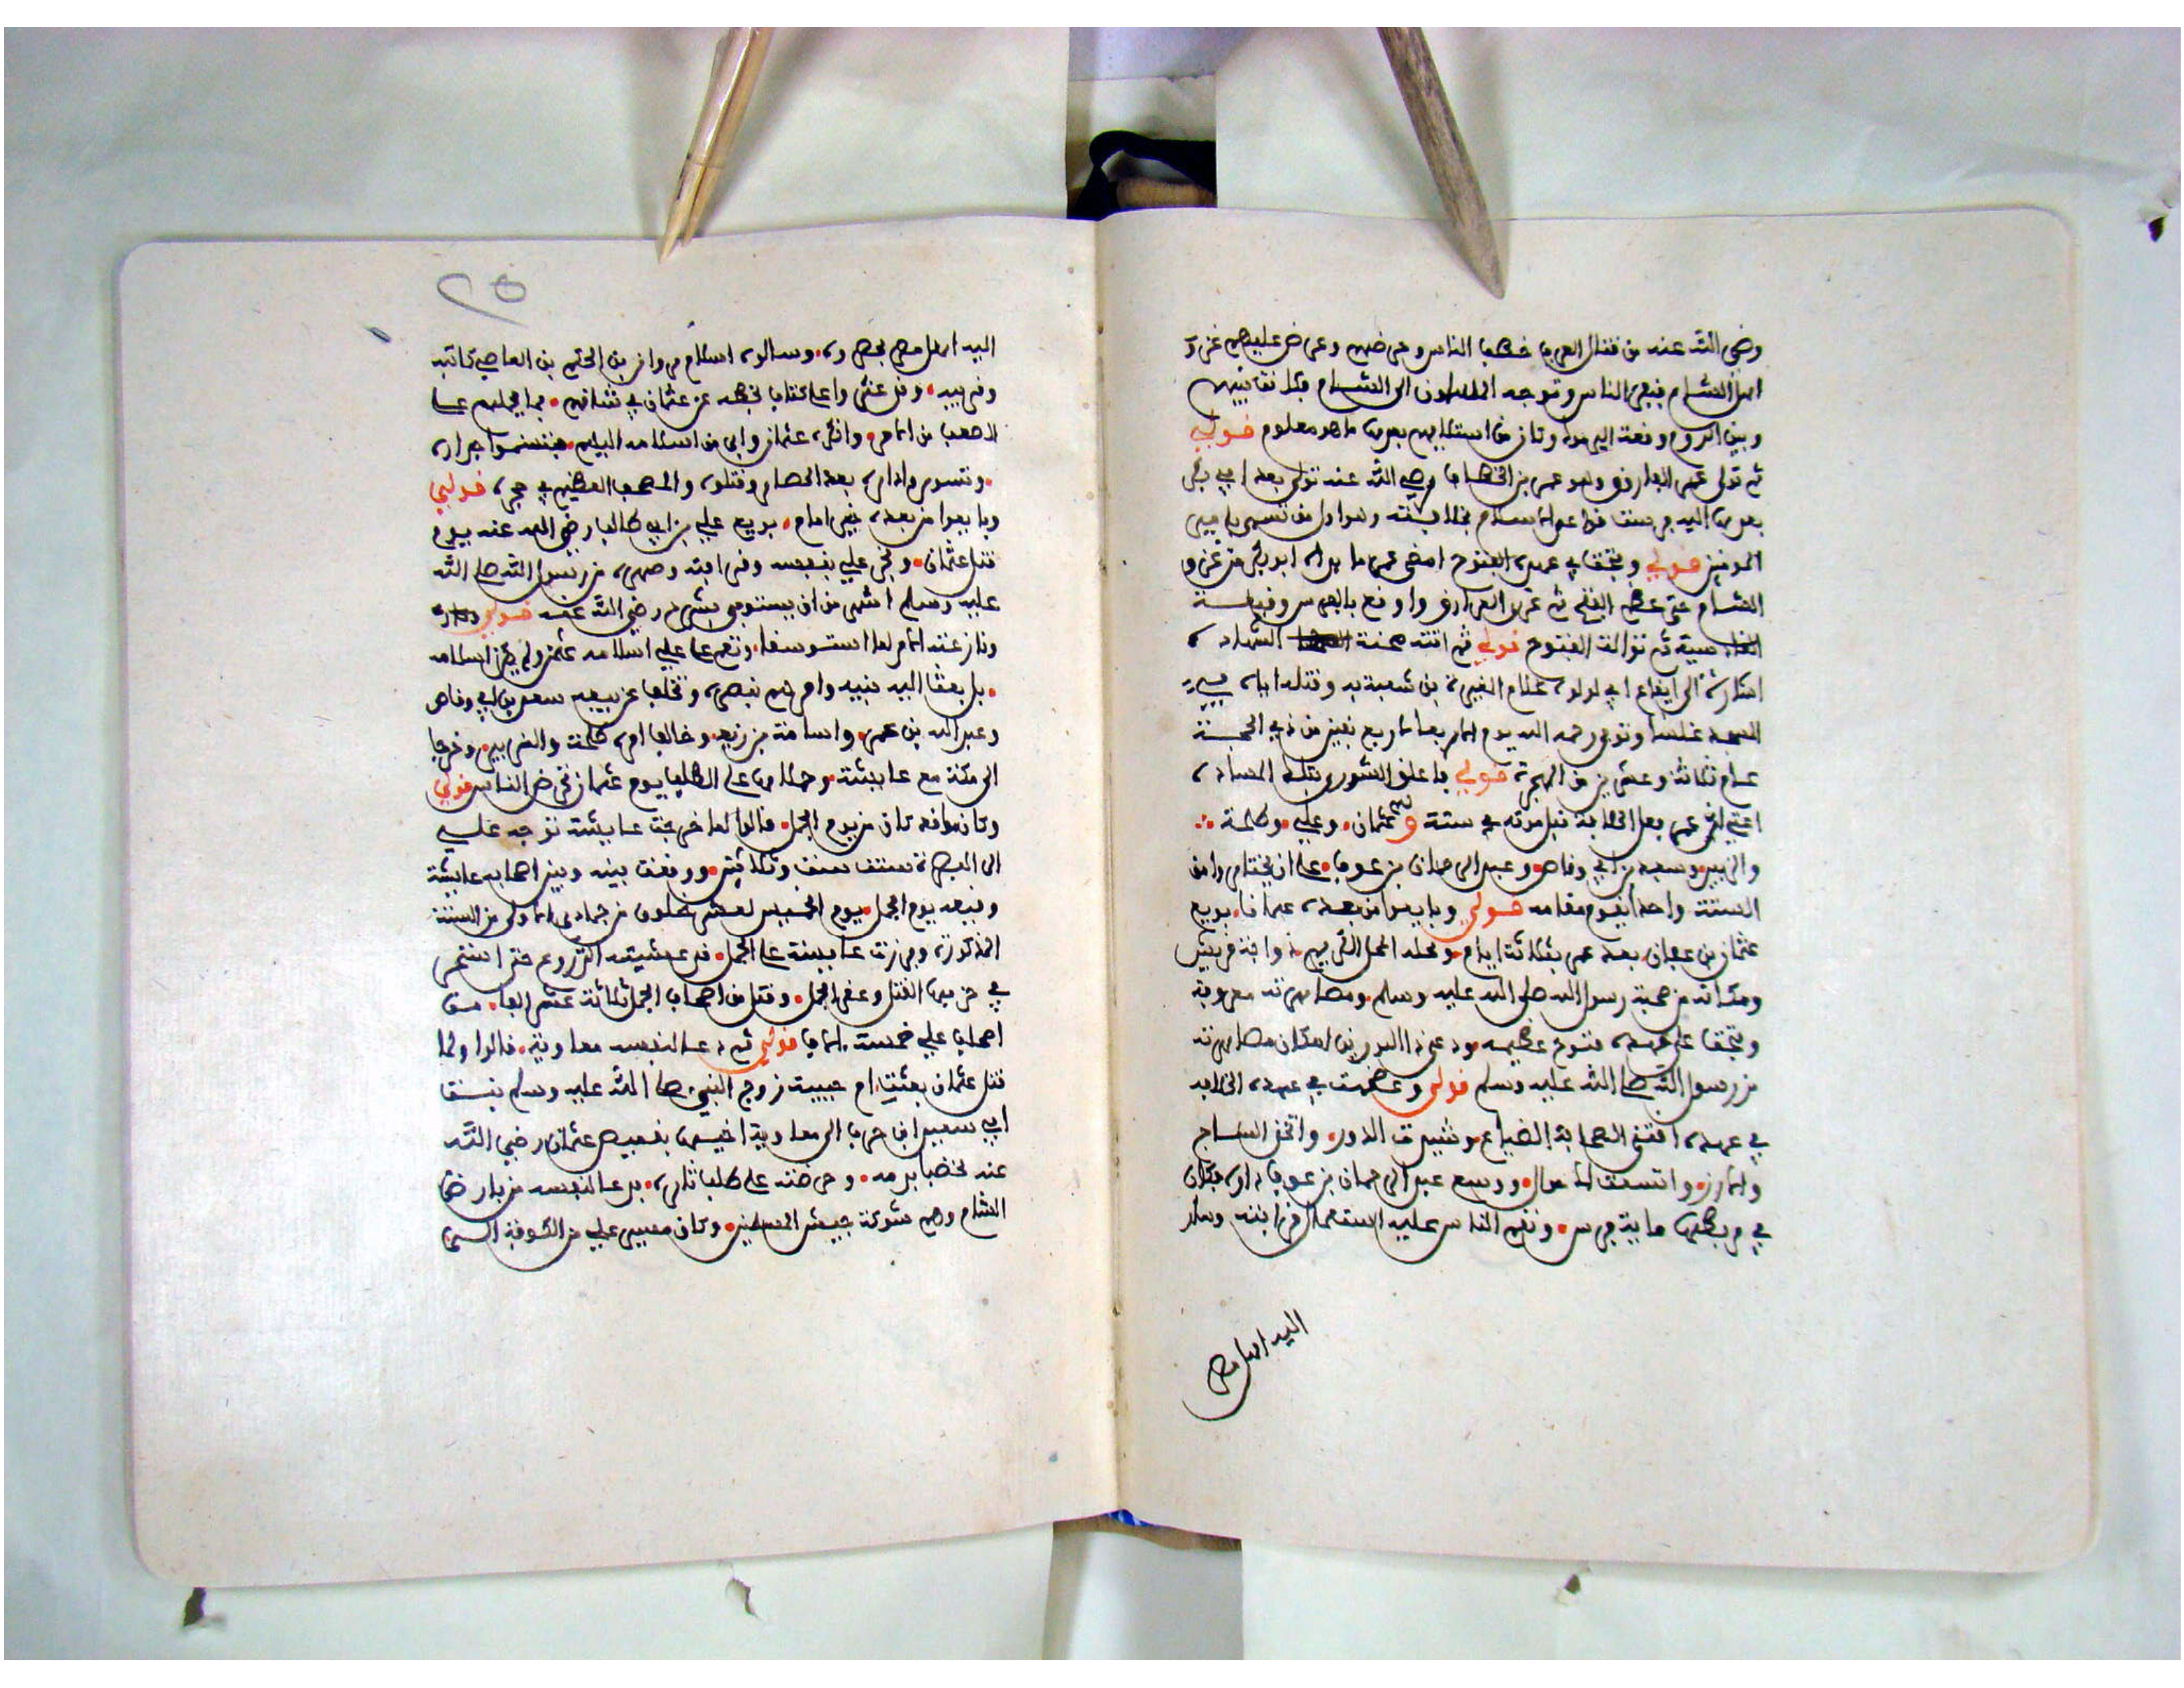 رضي الله عنه من قتال العرب خطب الناس وحرضهم وعرض عليهم غزو
اهل الشام فنفر الناس وتوجه المسلمون الى الشام فكانت بينهم
وبين الروم وقعت اليرموك وكان من استيلايهم بعدها ما هو معلوم قولي
ثم تولى عمر الفاروق وهو عمر بن الخطاب رضي الله عنه تولى بعد ابي بكر
بعهده اليه وهو اول من تسمى بامير
المومنين قولي وفتحت في عهده الفتوح امضى عمر ما بداه ابو بكر من غزو
الشام حتى عظم الفتح ثم غزى العراق واوقع بالفرس وقيعة
القادسية ثم توالت الفتوح قولي ثم اتته محنة الشهاده
اشارة الى ايقاع ابي لولوة غلام المغيرة بن شعبة به وقتله اياه في
المسجد غلسا وتوفي رحمه الله يوم الاربعا لاربع بقين من ذي الحجة
عام ثلاثة وعشرين من الهجرة قولي باعلق الشورى بتلك الساده
عمر جعل الخلافة قبل موته في ستة وهم عثمان وعلي وطلحة
والزبير وسعد بن ابي وقاص وعبد الرحمان بن عوف على ان يختاروا من
الستة واحدا يقوم مقامه قولي وبايعوا من بعده عثمانا بويع
عثمان بن عفان بعد عمر بثلاثة ايام ومحله المحل الشهير من ذوابة قريش
ومكانه من صحبة رسول الله صلى الله عليه وسلم ومصاهرته معروفة
وفتحت على عهده فتوح عظيمه ودعي ذا النورين لمكان مصاهرته
من رسول الله صلى الله عليه وسلم قولي وعظمت في عهده الخلافه
في عهده اقتنى الصحابة الضياع وشيدت الدور واتخذ الساج
والارز واتسعت الاموال ووسع عبد الرحمان بن عوف داره فكان
في مربطها ماية فرس ونقم الناس عليه استعمال قرابته وسار
اليه اهل مصر
٢٥
اليه اهل مصر فحصروه وسالوه اسلام مروان بن الحكم بن العاصي كاتبه
وقريبه وقد عثروا على كتاب بخطه عن عثمان في شانهم مما يحملهم على
الاصعب من الامر وانكره عثمان وابى من اسلامه اليهم فتسنموا جداره
وتسوروا داره بعد الحصار وقتلوه والمصحف العظيم في حجره قولي
وبايعوا من بعده خير امام بويع علي بن ابي طالب رضي الله عنه يوم
قتل عثمان وفخر علي بنفسه وقرابته وصهره من رسول الله صلى الله
عليه وسلم اشهر من ان يستوفى بشرح رضي الله عنه قولي
وكان عنه الامر لما استوسقا ونقم على علي اسلامه عثمن ولم يكن اسلامه
بل بعث اليه بنيه وامرهم بنصره وتخلف عن بيعته سعد بن ابي وقاص
وعبد الله بن عمر واسامة بن زيد وخالف امره طلحة والزبير وخرجا
الى مكة مع عايشة وحملاها على الطلب بدم عثمان فحرض الناس قولي
وكان مواقعه كان من يوم الجمل قالوا لما خرجت عايشة توجه علي
الى البصرة سنة ست وثلاثين ووقعت بينه وبين اصحابه عايشة
وقيعه يوم الجمل يوم الخميس لعشر خلون من جمادى الاولى من السنة
المذكورة وبرزت عايشة على الجمل قد غشيته الدروع حتى استحر
في حزبها القتل وعقر الجمل وقتل من اصحاب الجمل ثلاثة عشر الفا من
اصحاب علي خمسة الاف قولي ثم دعا لنفسه معاوية قالوا ولما
قتل عثمان بعثت ام حبيبة زوج النبي صلى الله عليه وسلم بنت
ابي سفين ابن حرب الى معاوية اخيها بقميص عثمان رضي الله
عنه مخضبا بدمه وحرضته على طلب ثاره فدعا لنفسه من بارض
الشام وهم شوكة جيش المسلمين وكان مسير علي من الكوفة الى